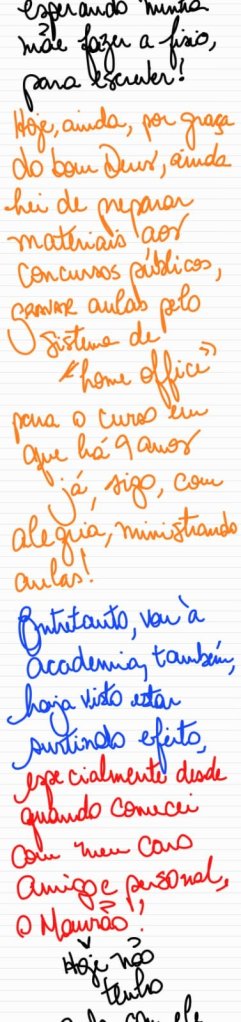 esperando minha
mãe fazer a fisio,
para escrever!
Hoje, ainda, por graça
do bom Deus, ainda
hei de preparar
materiais aos
concursos públicos,
GRAVAR aulas pelo
sistema de
"home office"
para o curso em
que há 9 anos
já, sigo, com
alegria, ministrando
aulas!
Entretanto, vou à
academia, também,
haja visto estar
surtindo efeito,
especialmente desde
quando comecei
com meu caro
amigo e personal,
o Maurão!!
Hoje não
tenho
com ele